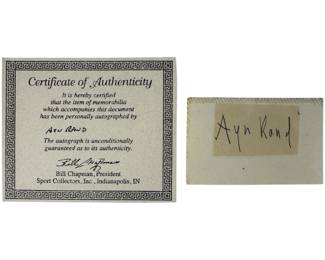 Certificate of Authenticity
It is hereby certified
that the item of memorabilia
which accompanies this document
has been personally autographed by
AYN RAND
The autograph is unconditionally
guaranteed as to its authenticity.
Bill Chapman, President
Sport Collectors, Inc., Indianapolis, IN
Ayn Rand